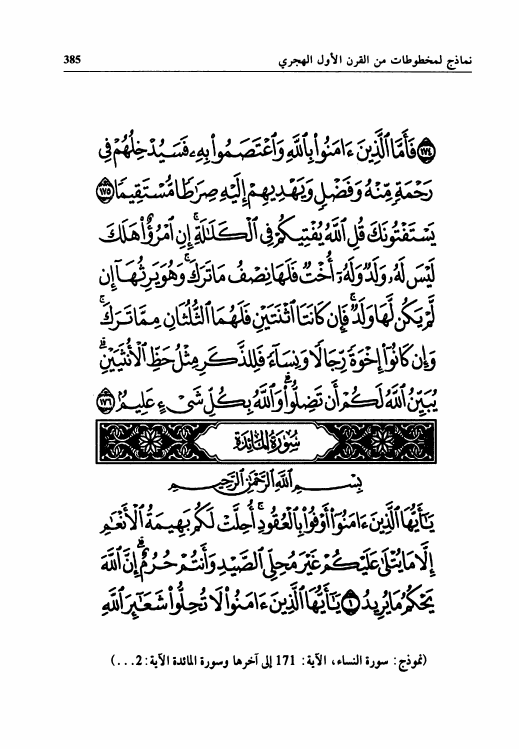 نماذج لمخطوطات من القرن الأول الهجري 385
١٧٤ فَأَمَّا ٱلَّذِينَ ءَامَنُوا۟ بِٱللَّهِ وَٱعْتَصَمُوا۟ بِهِۦ فَسَيُدْخِلُهُمْ فِى
رَحْمَةٍ مِّنْهُ وَفَضْلٍ وَيَهْدِيهِمْ إِلَيْهِ صِرَٰطًا مُّسْتَقِيمًا ١٧٥
يَسْتَفْتُونَكَ قُلِ ٱللَّهُ يُفْتِيكُمْ فِى ٱلْكَلَٰلَةِ ۚ إِنِ ٱمْرُؤٌا۟ هَلَكَ
لَيْسَ لَهُۥ وَلَدٌ وَلَهُۥٓ أُخْتٌ فَلَهَا نِصْفُ مَا تَرَكَ ۚ وَهُوَ يَرِثُهَآ إِن
لَّمْ يَكُن لَّهَا وَلَدٌ ۚ فَإِن كَانَتَا ٱثْنَتَيْنِ فَلَهُمَا ٱلثُّلُثَانِ مِمَّا تَرَكَ ۚ
وَإِن كَانُوٓا۟ إِخْوَةً رِّجَالًا وَنِسَآءً فَلِلذَّكَرِ مِثْلُ حَظِّ ٱلْأُنثَيَيْنِ ۗ
يُبَيِّنُ ٱللَّهُ لَكُمْ أَن تَضِلُّوا۟ ۗ وَٱللَّهُ بِكُلِّ شَىْءٍ عَلِيمٌۢ ١٧٦
سُورَةُ المَائِدَةِ
بِسْمِ ٱللَّهِ ٱلرَّحْمَٰنِ ٱلرَّحِيمِ
يَٰٓأَيُّهَا ٱلَّذِينَ ءَامَنُوٓا۟ أَوْفُوا۟ بِٱلْعُقُودِ ۚ أُحِلَّتْ لَكُم بَهِيمَةُ ٱلْأَنْعَٰمِ
إِلَّا مَا يُتْلَىٰ عَلَيْكُمْ غَيْرَ مُحِلِّى ٱلصَّيْدِ وَأَنتُمْ حُرُمٌ ۗ إِنَّ ٱللَّهَ
يَحْكُمُ مَا يُرِيدُ ١ يَٰٓأَيُّهَا ٱلَّذِينَ ءَامَنُوا۟ لَا تُحِلُّوا۟ شَعَٰٓئِرَ ٱللَّهِ
(نموذج: سورة النساء، الآية: 171 إلى آخرها وسورة المائدة الآية: 2...)